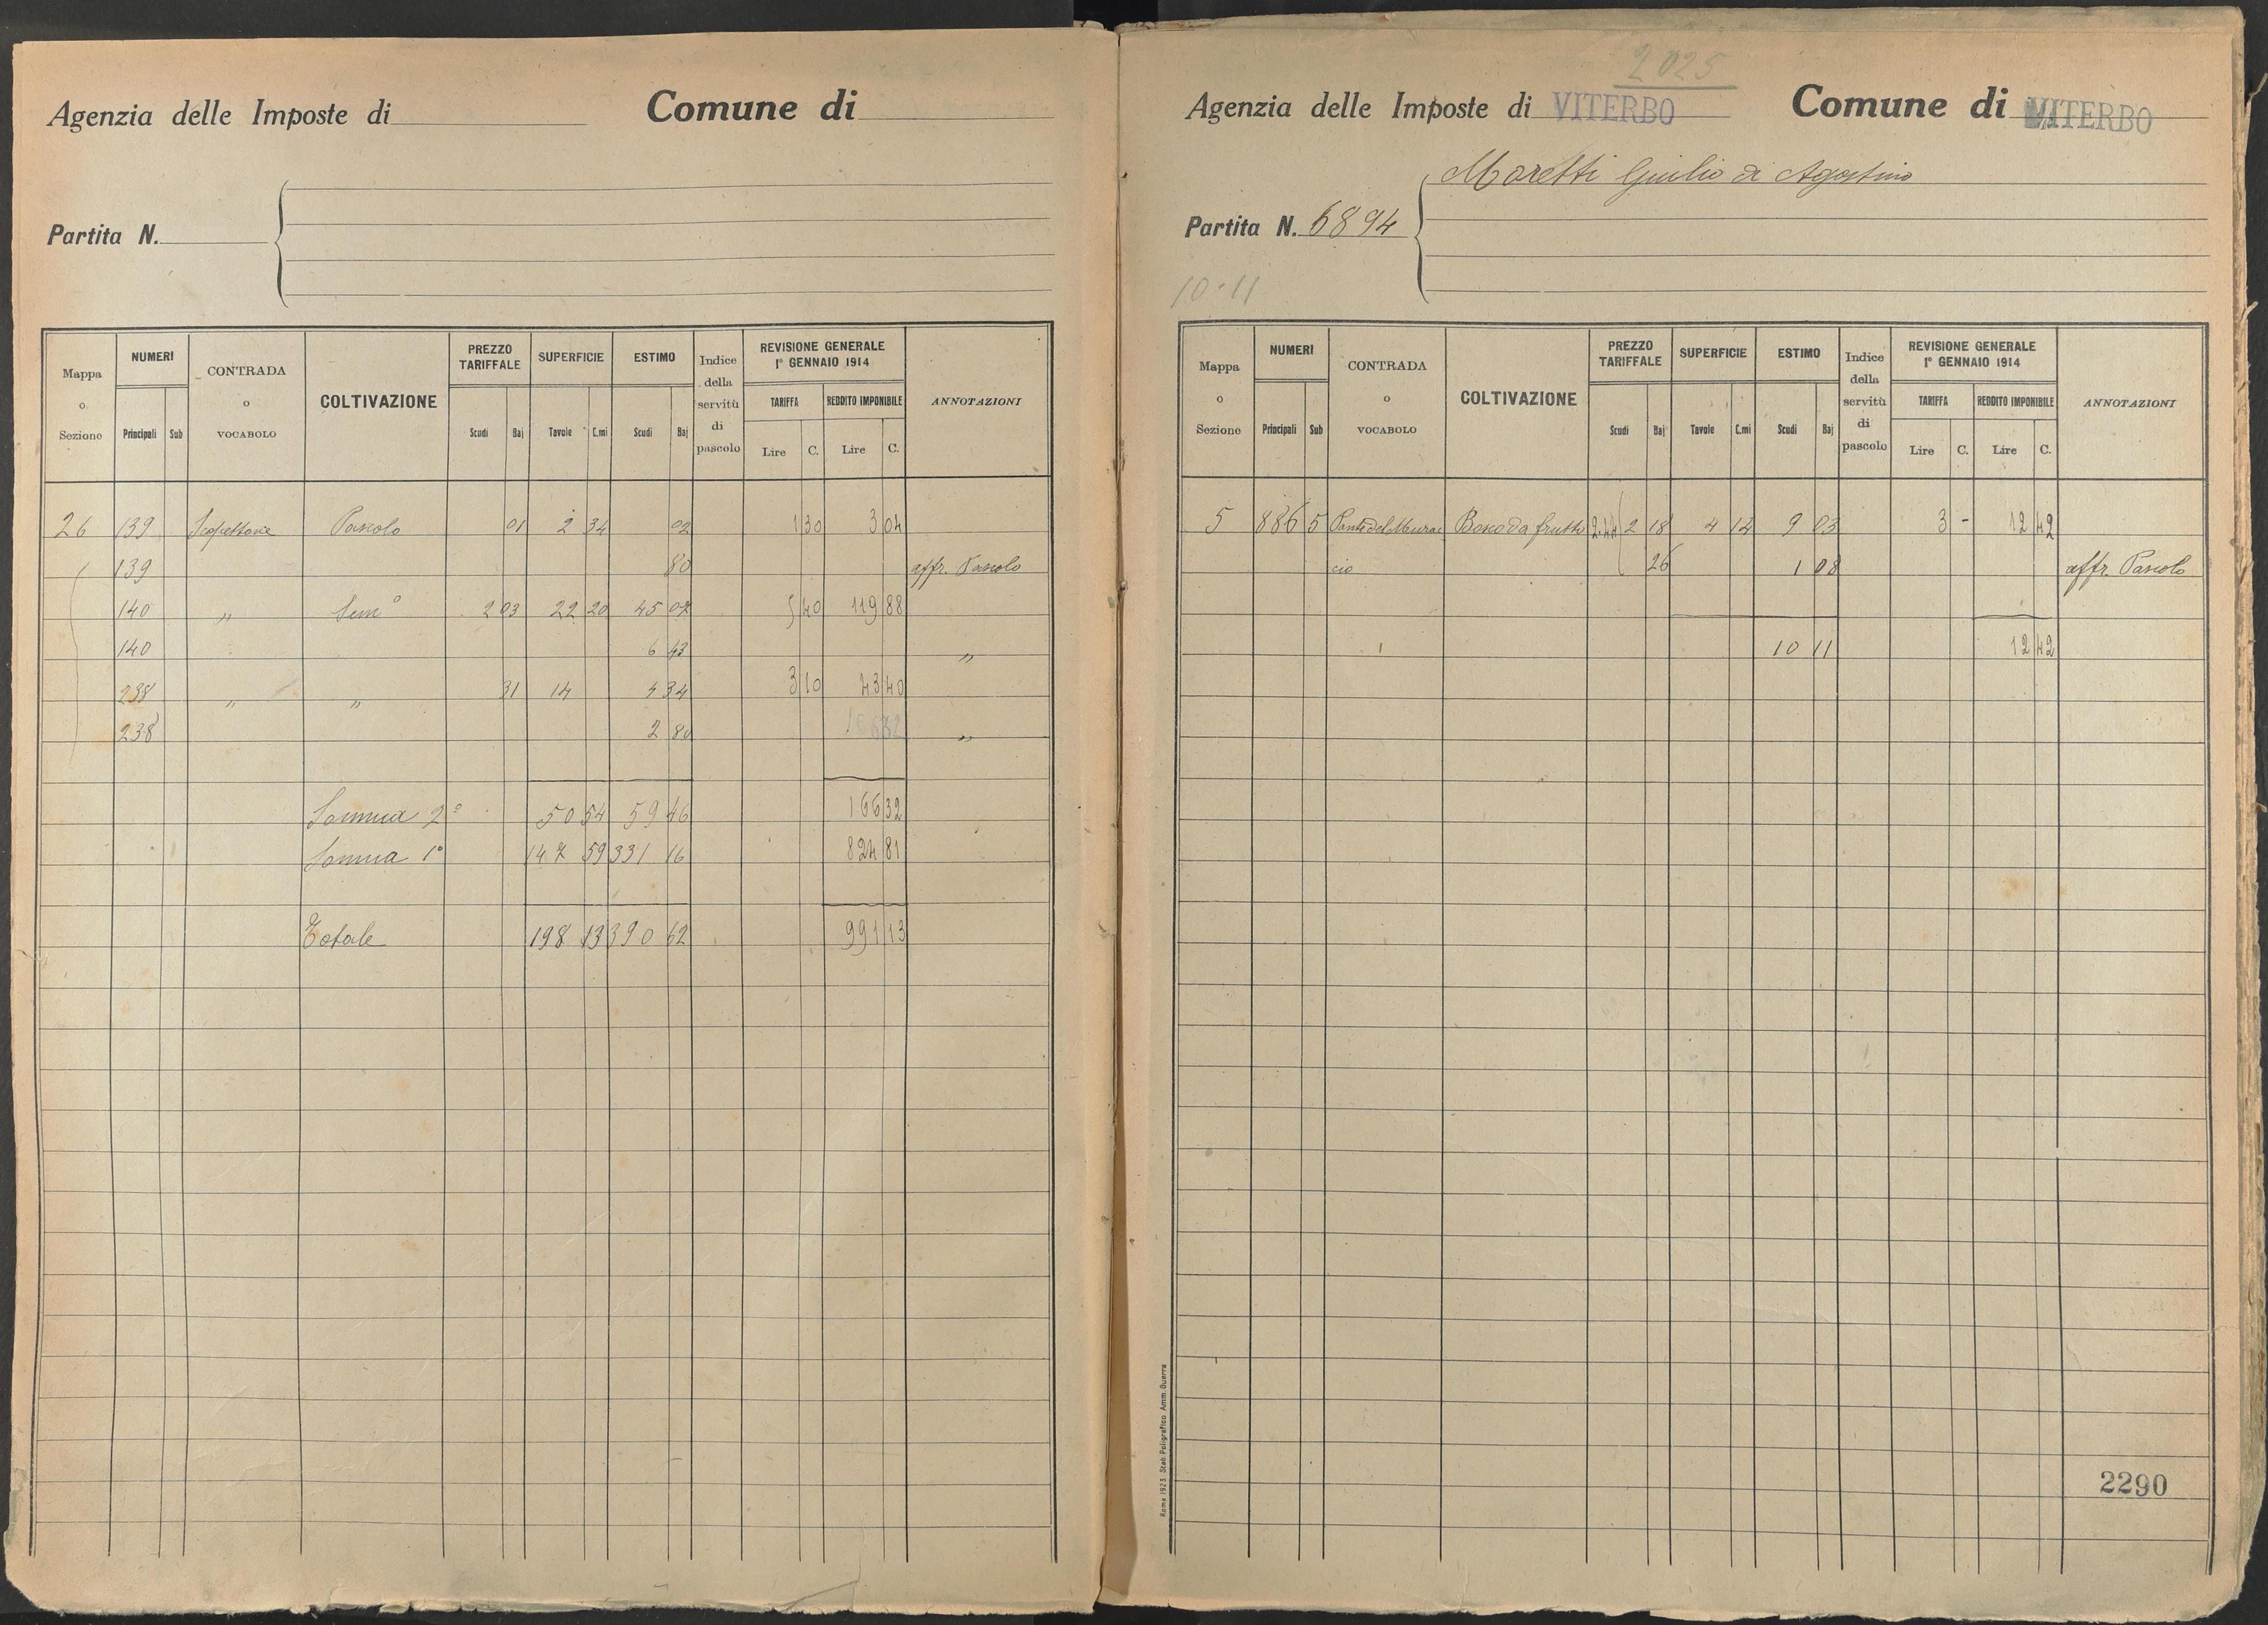 Agenzia delle Imposte di Comune di
Partita N.
Mappa o Sezione NUMERI CONTRADA o VOCABOLO COLTIVAZIONE PREZZO TARIFFALE SUPERFICIE ESTIMO Indice della servitù di pascolo REVISIONE GENERALE 1° GENNAIO 1914 ANNOTAZIONI
TARIFFA REDDITO IMPONIBILE
Principali Sub Scudi Baj Tavole C.mi Scudi Baj Lire C. Lire C.
26 139 Pascolo 01 2 34 02 1 30 3 04
139 80 affr. Pascolo
140 " Sem° 2 03 22 20 45 07 5 40 119 88
140 6 43 "
238 " " 31 14 4 34 3 10 43 40
238 2 80 "
Somma 2° 50 54 59 46 166 32
Somma 1° 147 59 331 16 824 81
Totale 198 13 390 62 991 13
2025
Agenzia delle Imposte di VITERBO Comune di VITERBO
Moretti Giulio di Agostino
Partita N. 6894
10·11
Mappa o Sezione NUMERI CONTRADA o VOCABOLO COLTIVAZIONE PREZZO TARIFFALE SUPERFICIE ESTIMO Indice della servitù di pascolo REVISIONE GENERALE 1° GENNAIO 1914 ANNOTAZIONI
TARIFFA REDDITO IMPONIBILE
Principali Sub Scudi Baj Tavole C.mi Scudi Baj Lire C. Lire C.
5 886 5 Bosco da frutto 2.44 2 18 4 14 9 03 3 - 12 42
cio 26 1 08 affr. Pascolo
10 11 12 42
Roma 1923 Stab. Poligrafico Amm. Guerra
2290